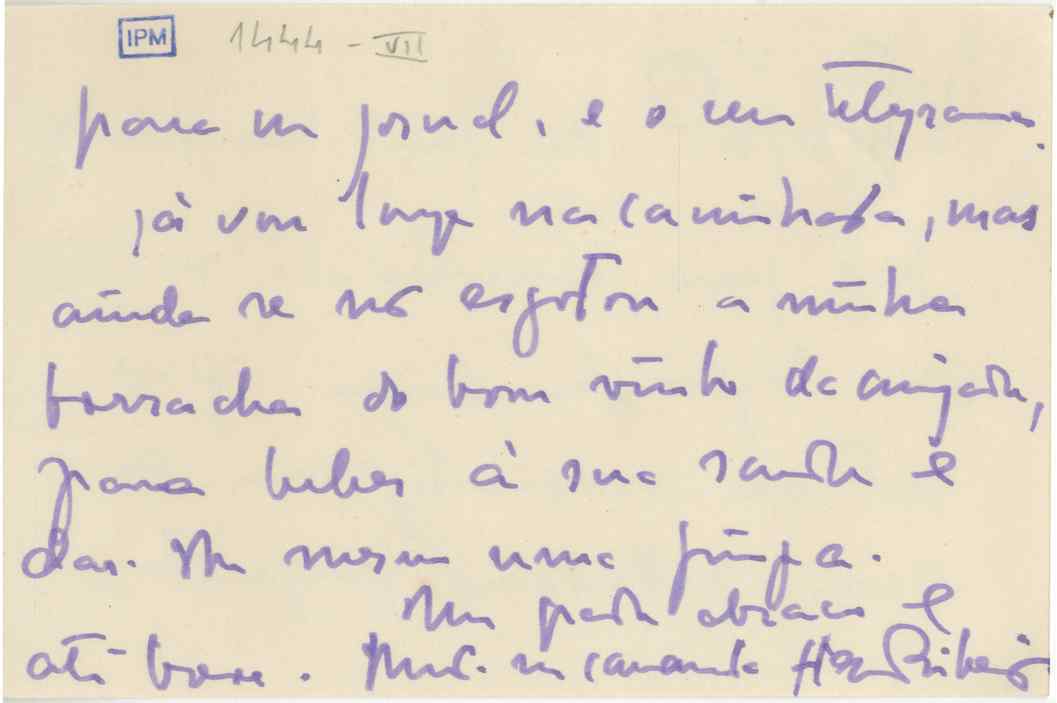 IPM 1444 - VII
para um jornal, e o seu telegrama.
Já vou longe na caminhada, mas
ainda se não esgotou a minha
borracha do bom vinho da amizade,
para beber à sua saude e
dar-lhe mesmo uma pinga.
Um grande abraço e
até breve. camarada Ribeiro